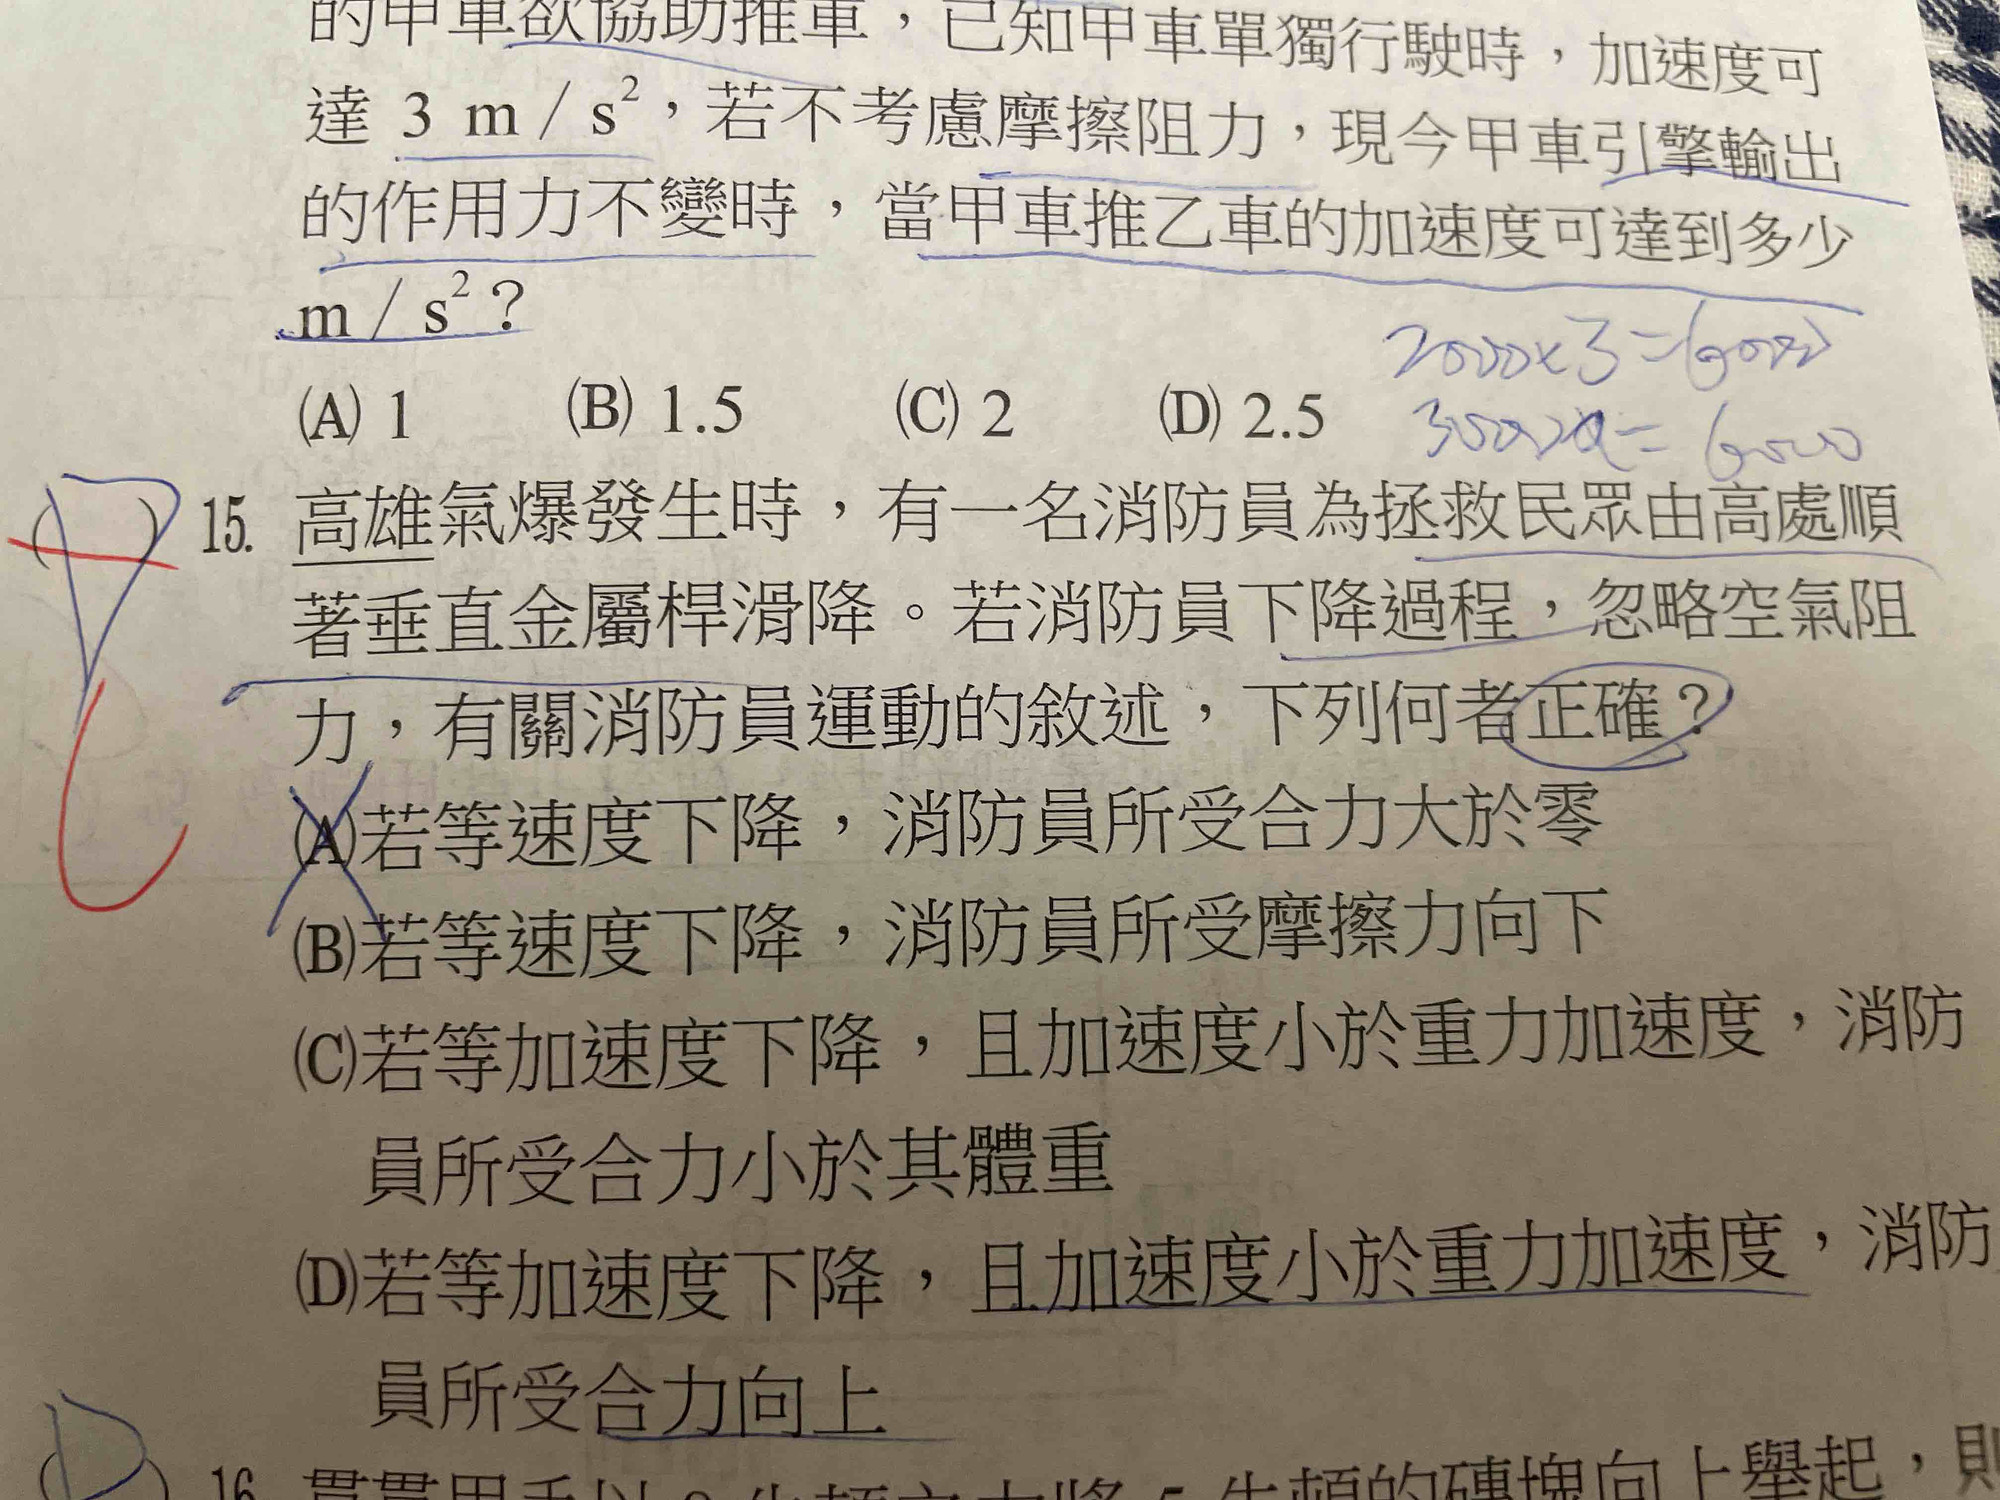 的甲車欲協助推車，已知甲車單獨行駛時，加速度可
達 3 m/s²，若不考慮摩擦阻力，現今甲車引擎輸出
的作用力不變時，當甲車推乙車的加速度可達到多少
m/s²？
2000×3=6000
(A) 1 (B) 1.5 (C) 2 (D) 2.5
3000×a=6000
( ) 15. 高雄氣爆發生時，有一名消防員為拯救民眾由高處順
著垂直金屬桿滑降。若消防員下降過程，忽略空氣阻
力，有關消防員運動的敘述，下列何者正確？
(A)若等速度下降，消防員所受合力大於零
(B)若等速度下降，消防員所受摩擦力向下
(C)若等加速度下降，且加速度小於重力加速度，消防
員所受合力小於其體重
(D)若等加速度下降，且加速度小於重力加速度，消防
員所受合力向上
C
D
16.
牛頓的磚塊向上舉起，則